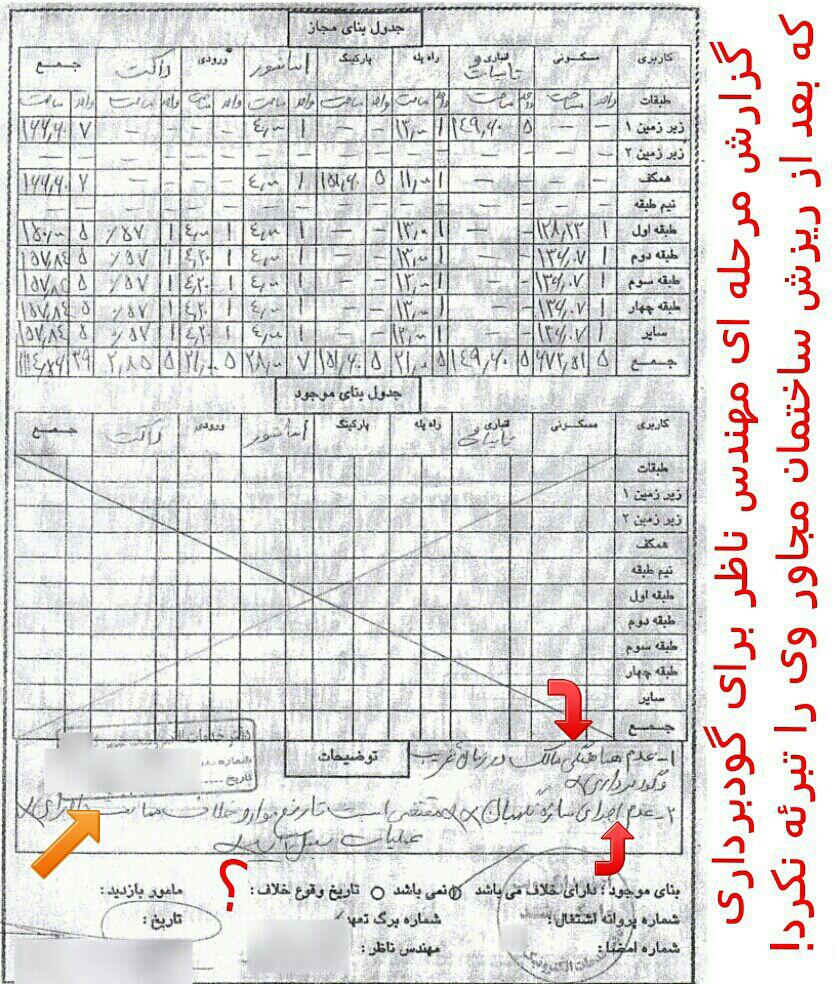 گزارش مرحله ای مهندس ناظر برای گودبرداری
که بعد از ریزش ساختمان مجاور وی را تبرئه نکرد!
جدول بنای مجاز
کاربری مسکونی تجاری تاسیسات راه پله پارکینگ آسانسور ورودی داکت جمع
طبقات واحد مساحت واحد مساحت واحد مساحت واحد مساحت واحد مساحت واحد مساحت واحد مساحت واحد مساحت
زیر زمین ۱ – – ۵ ۱۴۹٫۶۰ ۱ ۱۳٫۰۰ – – ۱ ۴٫۰۰ – – – – ۷ ۱۶۶٫۶۰
زیر زمین ۲ – – – – – – – – – – – – – – – –
همکف – – – – ۱ ۱۱٫۰۰ ۵ ۱۵۱٫۶۰ ۱ ۴٫۰۰ – – – – ۷ ۱۶۶٫۶۰
نیم طبقه – – – – – – – – – – – – – – – –
طبقه اول ۱ ۱۲۸٫۲۳ – – ۱ ۱۳٫۰۰ – – ۱ ۴٫۰۰ ۱ ۴٫۰۰ ۱ ٪۵۷ ۵ ۱۵۰٫۰۰
طبقه دوم ۱ ۱۳۶٫۰۷ – – ۱ ۱۳٫۰۰ – – ۱ ۴٫۰۰ ۱ ۴٫۲۰ ۱ ٪۵۷ ۵ ۱۵۷٫۸۴
طبقه سوم ۱ ۱۳۶٫۰۷ – – ۱ ۱۳٫۰۰ – – ۱ ۴٫۰۰ ۱ ۴٫۲۰ ۱ ٪۵۷ ۵ ۱۵۷٫۸۴
طبقه چهار ۱ ۱۳۶٫۰۷ – – ۱ ۱۳٫۰۰ – – ۱ ۴٫۰۰ ۱ ۴٫۲۰ ۱ ٪۵۷ ۵ ۱۵۷٫۸۴
سایر ۱ ۱۳۶٫۰۷ – – ۱ ۱۳٫۰۰ – – ۱ ۴٫۰۰ ۱ ۴٫۲۰ ۱ ٪۵۷ ۵ ۱۵۷٫۸۴
جمع ۵ ۶۷۲٫۵۱ ۵ ۱۴۹٫۶۰ ۵ ۱۵۱٫۶۰ ۷ ۲۸٫۰۰ ۵ ۲۱٫۰۰ ۵ ۲٫۸۵ ۳۹
جدول بنای موجود
کاربری مسکونی تجاری تاسیسات راه پله پارکینگ آسانسور ورودی داکت جمع
طبقات
زیر زمین ۱
زیر زمین ۲
همکف
نیم طبقه
طبقه اول
طبقه دوم
طبقه سوم
طبقه چهار
سایر
جمع
شماره
تاریخ
توضیحات
۱- عدم هماهنگی مالک در زمان تخریب
و گودبرداری
۲- عدم اجرای سازه نگهبان مقتضی است تا رفع موارد خلاف ممانعت از اجرای
عملیات
بنای موجود : دارای خلاف می باشد نمی باشد تاریخ وقوع خلاف : مامور بازدید :
؟!
شماره پروانه اشتغال : شماره برگ تعهد تاریخ :
شماره امضا : مهندس ناظر :